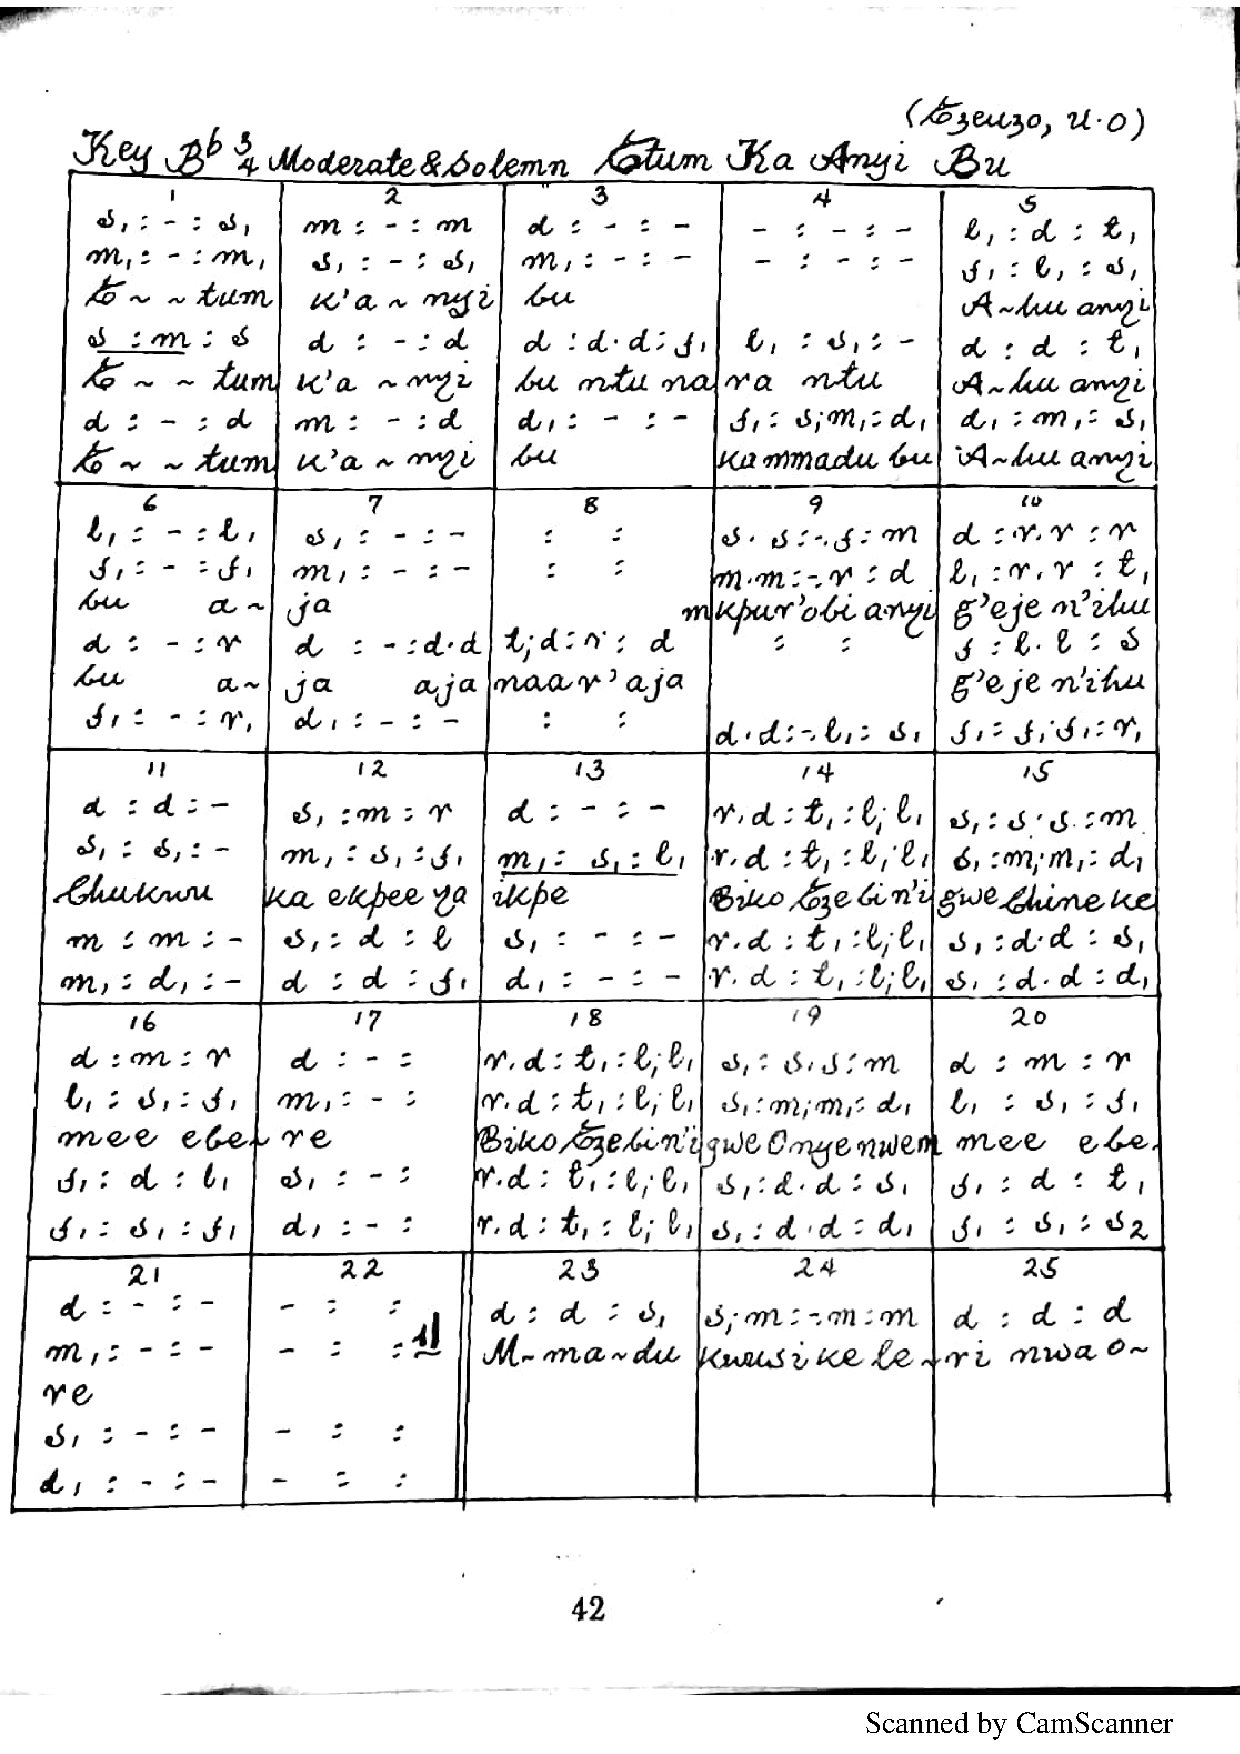 (Ezeuzo, U.O)
Key Bb 3/4 Moderate & Solemn Etum Ka Anyi Bu
1 2 3 4 5
s, : - : s, m : - : m d : - : - - : - : - l, : d : t,
m, : - : m, s, : - : s, m, : - : - - : - : - f, : l, : s,
E ~ ~ tum k'a ~ nyi bu A~hu anyi
s : m : s d : - : d d : d . d : f, l, : s, : - d : d : t,
E ~ ~ tum k'a ~ nyi bu ntu na ra ntu A~hu anyi
d : - : d m : - : d d, : - : - f, : s, . m, : d, d, : m, : s,
E ~ ~ tum k'a ~ nyi bu ka mmadu bu A~hu anyi
6 7 8 9 10
l, : - : l, s, : - : - : : s . s : - . f : m d : r . r : r
f, : - : f, m, : - : - : : m . m : - . r : d l, : r . r : t,
bu a~ ja mkpur'obi anyi g'eje n'ihu
d : - : r d : - : d . d t, . d : r : d : : f : l . l : s
bu a~ ja aja naar'aja g'eje n'ihu
f, : - : r, d, : - : - : : d . d : - . l, : s, f, : f, . f, : r,
11 12 13 14 15
d : d : - s, : m : r d : - : - r . d : t, : l, . l, s, : s . s : m
s, : s, : - m, : s, : f, m, : s, : l, r . d : t, : l, . l, s, : m, . m, : d,
Chukwu ka ekpee ya ikpe Biko Eze bi n'i gwe Chineke
m : m : - s, : d : l s, : - : - r . d : t, : l, . l, s, : d . d : s,
m, : d, : - d : d : f, d, : - : - r . d : t, : l, . l, s, : d . d : d,
16 17 18 19 20
d : m : r d : - : r . d : t, : l, . l, s, : s . s : m d : m : r
l, : s, : f, m, : - : r . d : t, : l, . l, s, : m, . m, : d, l, : s, : f,
mee ebe~ re Biko Eze bi n'i gwe Onyenwem mee ebe~
f, : d : l, s, : - : r . d : t, : l, . l, s, : d . d : s, f, : d : t,
f, : s, : f, d, : - : r . d : t, : l, . l, s, : d . d : d, f, : s, : s2
21 22 23 24 25
d : - : - - : : d : d : s, s, . m : - . m : m d : d : d
m, : - : - - : : M~ma~du kwusike le~ ri nwa o~
re
s, : - : - - : :
d, : - : - - : :
42
Scanned by CamScanner